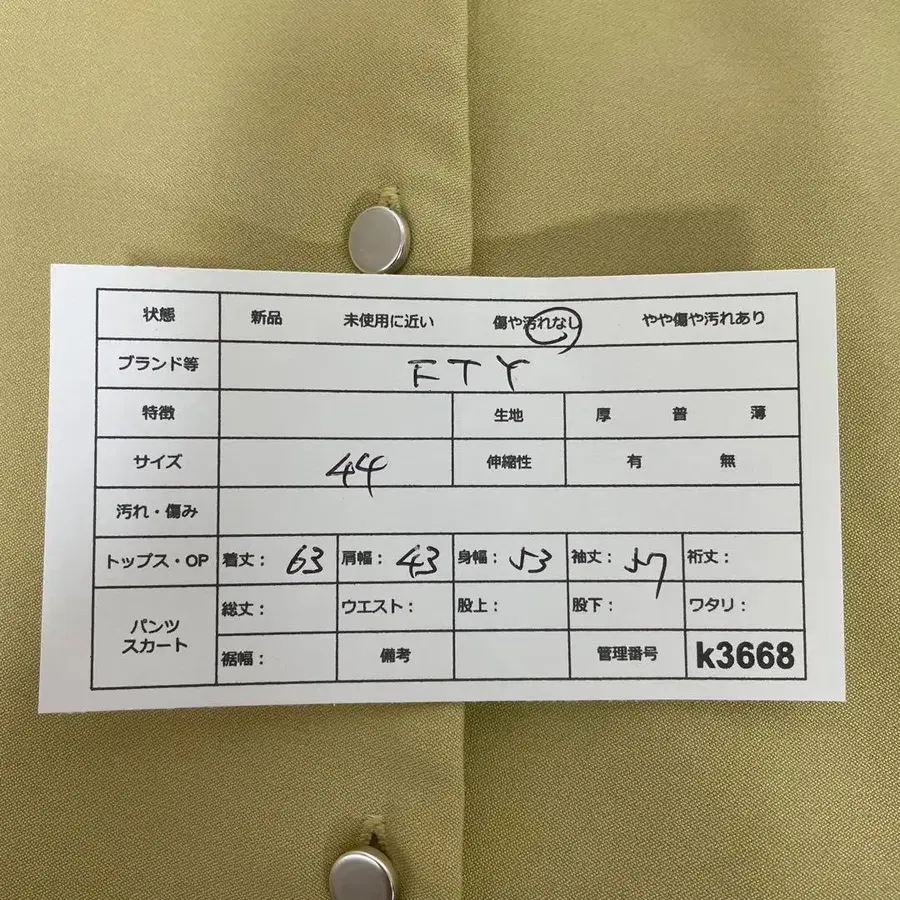 状態 新品 未使用に近い 傷や汚れなし やや傷や汚れあり
ブランド等 FTY
特徴 生地 厚 普 薄
サイズ 44 伸縮性 有 無
汚れ・傷み
トップス・OP 着丈: 63 肩幅: 43 身幅: 53 袖丈: 57 裄丈:
パンツ スカート 総丈: ウエスト: 股上: 股下: ワタリ:
裾幅: 備考 管理番号 k3668